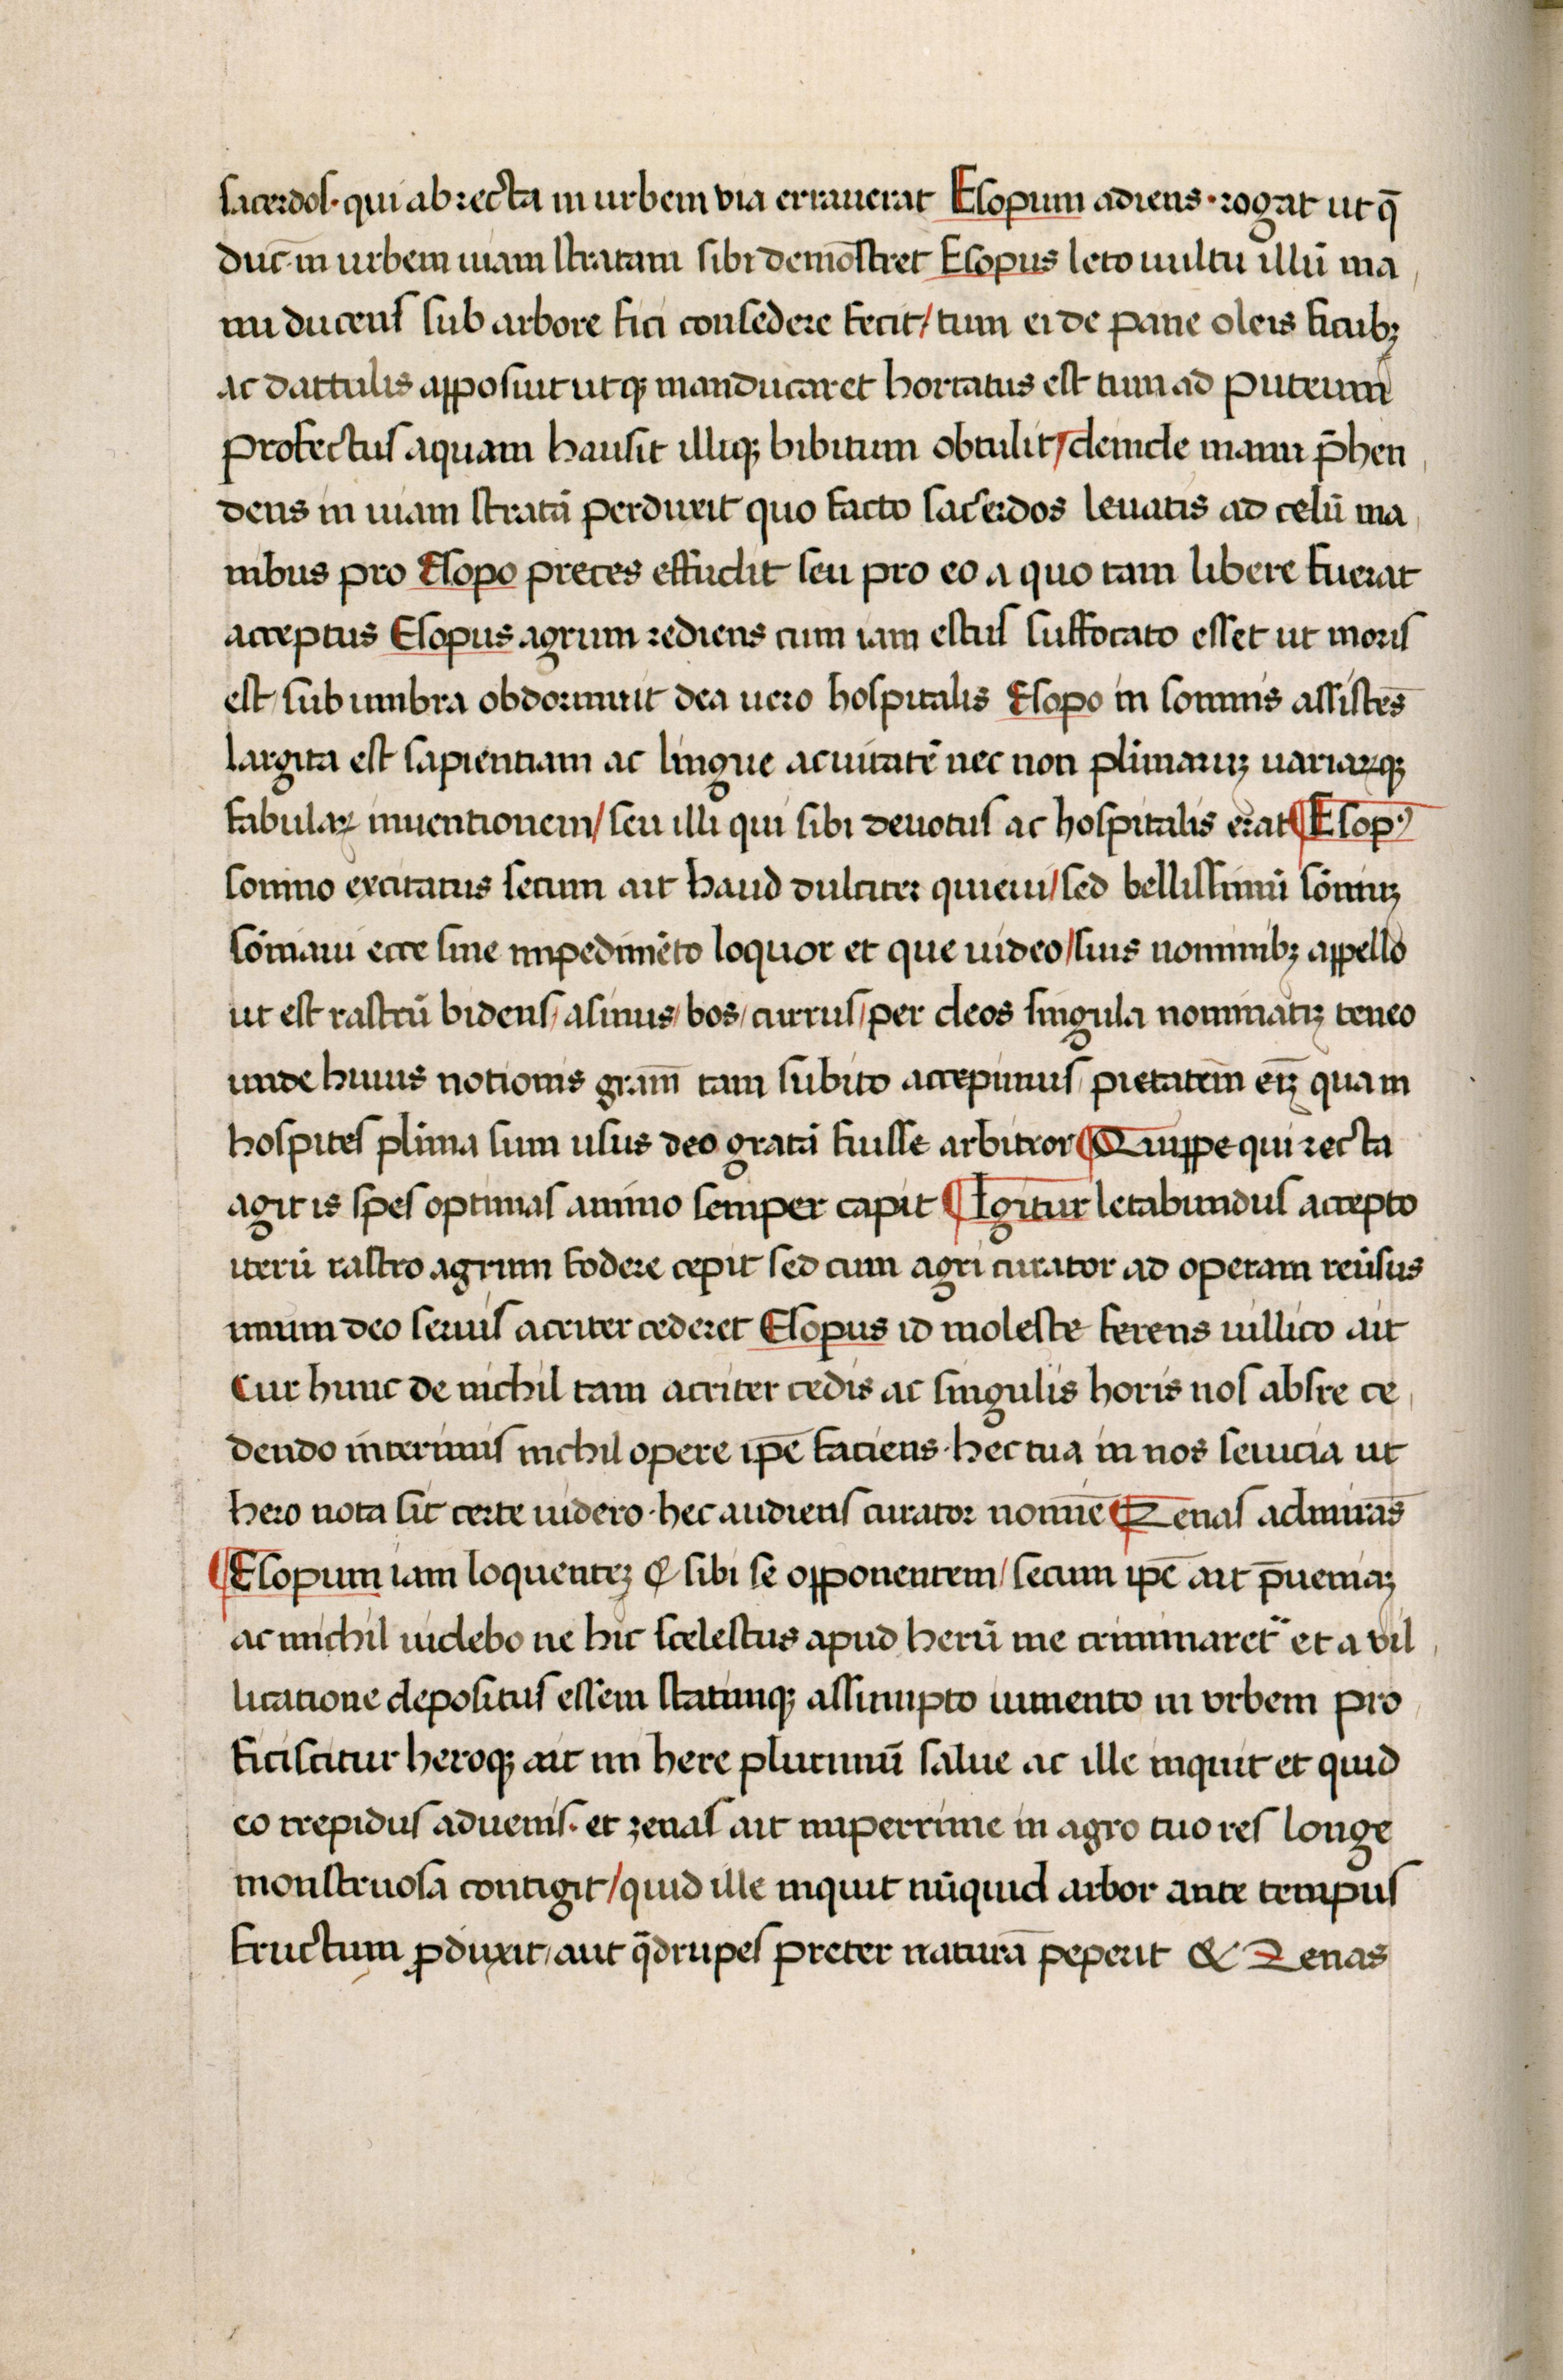 sacerdos· qui ab recta in urbem via errauerat Esopum adiens · rogat ut q̄
duc̄ in urbem uiam stratam sibi demōstret Esopus leto uultu illū ma
nu ducens sub arbore fici consedere fecit / tum ei de pane oleis ficubꝫ
ac dattulis apposuit utqꝫ manducaret hortatus est tum ad puteum
profectus aquam hausit illiqꝫ bibitum obtulit / deinde manu p̄hen
dens in uiam stratā perduxit quo facto sacerdos leuatis ad celū ma
nibus pro Esopo preces effudit seu pro eo a quo tam libere fuerat
acceptus Esopus agrum rediens cum iam estus suffocato esset ut moris
est / sub umbra obdormiuit dea uero hospitalis Esopo in somnis assistēs
largita est sapientiam ac lingue acuitatē nec non plimaruꝫ uariaꝝqꝫ
fabulaꝝ inuentionem / seu illi qui sibi deuotus ac hospitalis erat ¶ Esopꝰ
somno excitatus secum ait haud dulciter quieui / sed bellissimū sōniuꝫ
sōniaui ecce sine impedimēto loquor et que uideo / suis nominibꝫ appello
ut est rastrū bidens / asinus / bos / currus / per deos singula nominatiꝫ teneo
unde huius notionis gram̄ tam subito accepimus / pietatem̄ eiꝫ qua in
hospites plima sum usus deo gratā fuisse arbitror ¶ Quippe qui recta
agit is spes optimas animo semper capit ¶ Igitur letabundus accepto
iterū rastro agrum fodere cepit sed cum agri curator ad operam reūsus
unum deo seruis acriter cederet Esopus id moleste ferens uillico ait
Cur hunc de nichil tam acriter cedis ac singulis horis nos absre ce
dendo interimis nichil opere ip̄e faciens · hec tua in nos seuicia ut
hero nota sit certe uidero · hec audiens curator nomīe ¶ Zenas admirās
¶ Esopum iam loquenteꝫ & sibi se opponentem / secum ip̄e ait p̄ueniaꝫ
ac nichil uidebo ne hic scelestus apud herū me criminaret᷑ et a vil
licatione depositus essem statimqꝫ assumpto iumento in vrbem pro
ficiscitur heroqꝫ ait mi here plurimū salue ac ille inquit et quid
eo trepidus aduenis · et zenas ait nuperrime in agro tuo res longe
monstruosa contigit / quid ille inquit nūquid arbor ante tempus
fructum ꝓduxit / aut q̄drupes preter naturā peperit & Zenas